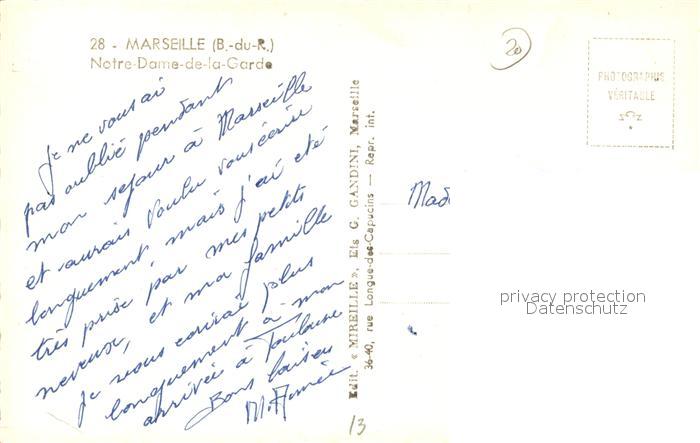 28 - MARSEILLE (B.-du-R.)
Notre-Dame-de-la-Garde
Je ne vous ai
pas oublié pendant
mon séjour à Marseille
et aurais voulu vous écrire
longuement mais j'ai été
très prise par mes petits
neveux, et ma famille
Je vous écrirai plus
longuement à mon
arrivée à Toulouse
Bons baisers
M. Aimée
Edit. « MIREILLE », Ets G. GANDINI, Marseille
36-40, rue Longue-des-Capucins — Repr. int.
20
PHOTOGRAPHIE
VÉRITABLE
Mad
privacy protection
Datenschutz
13